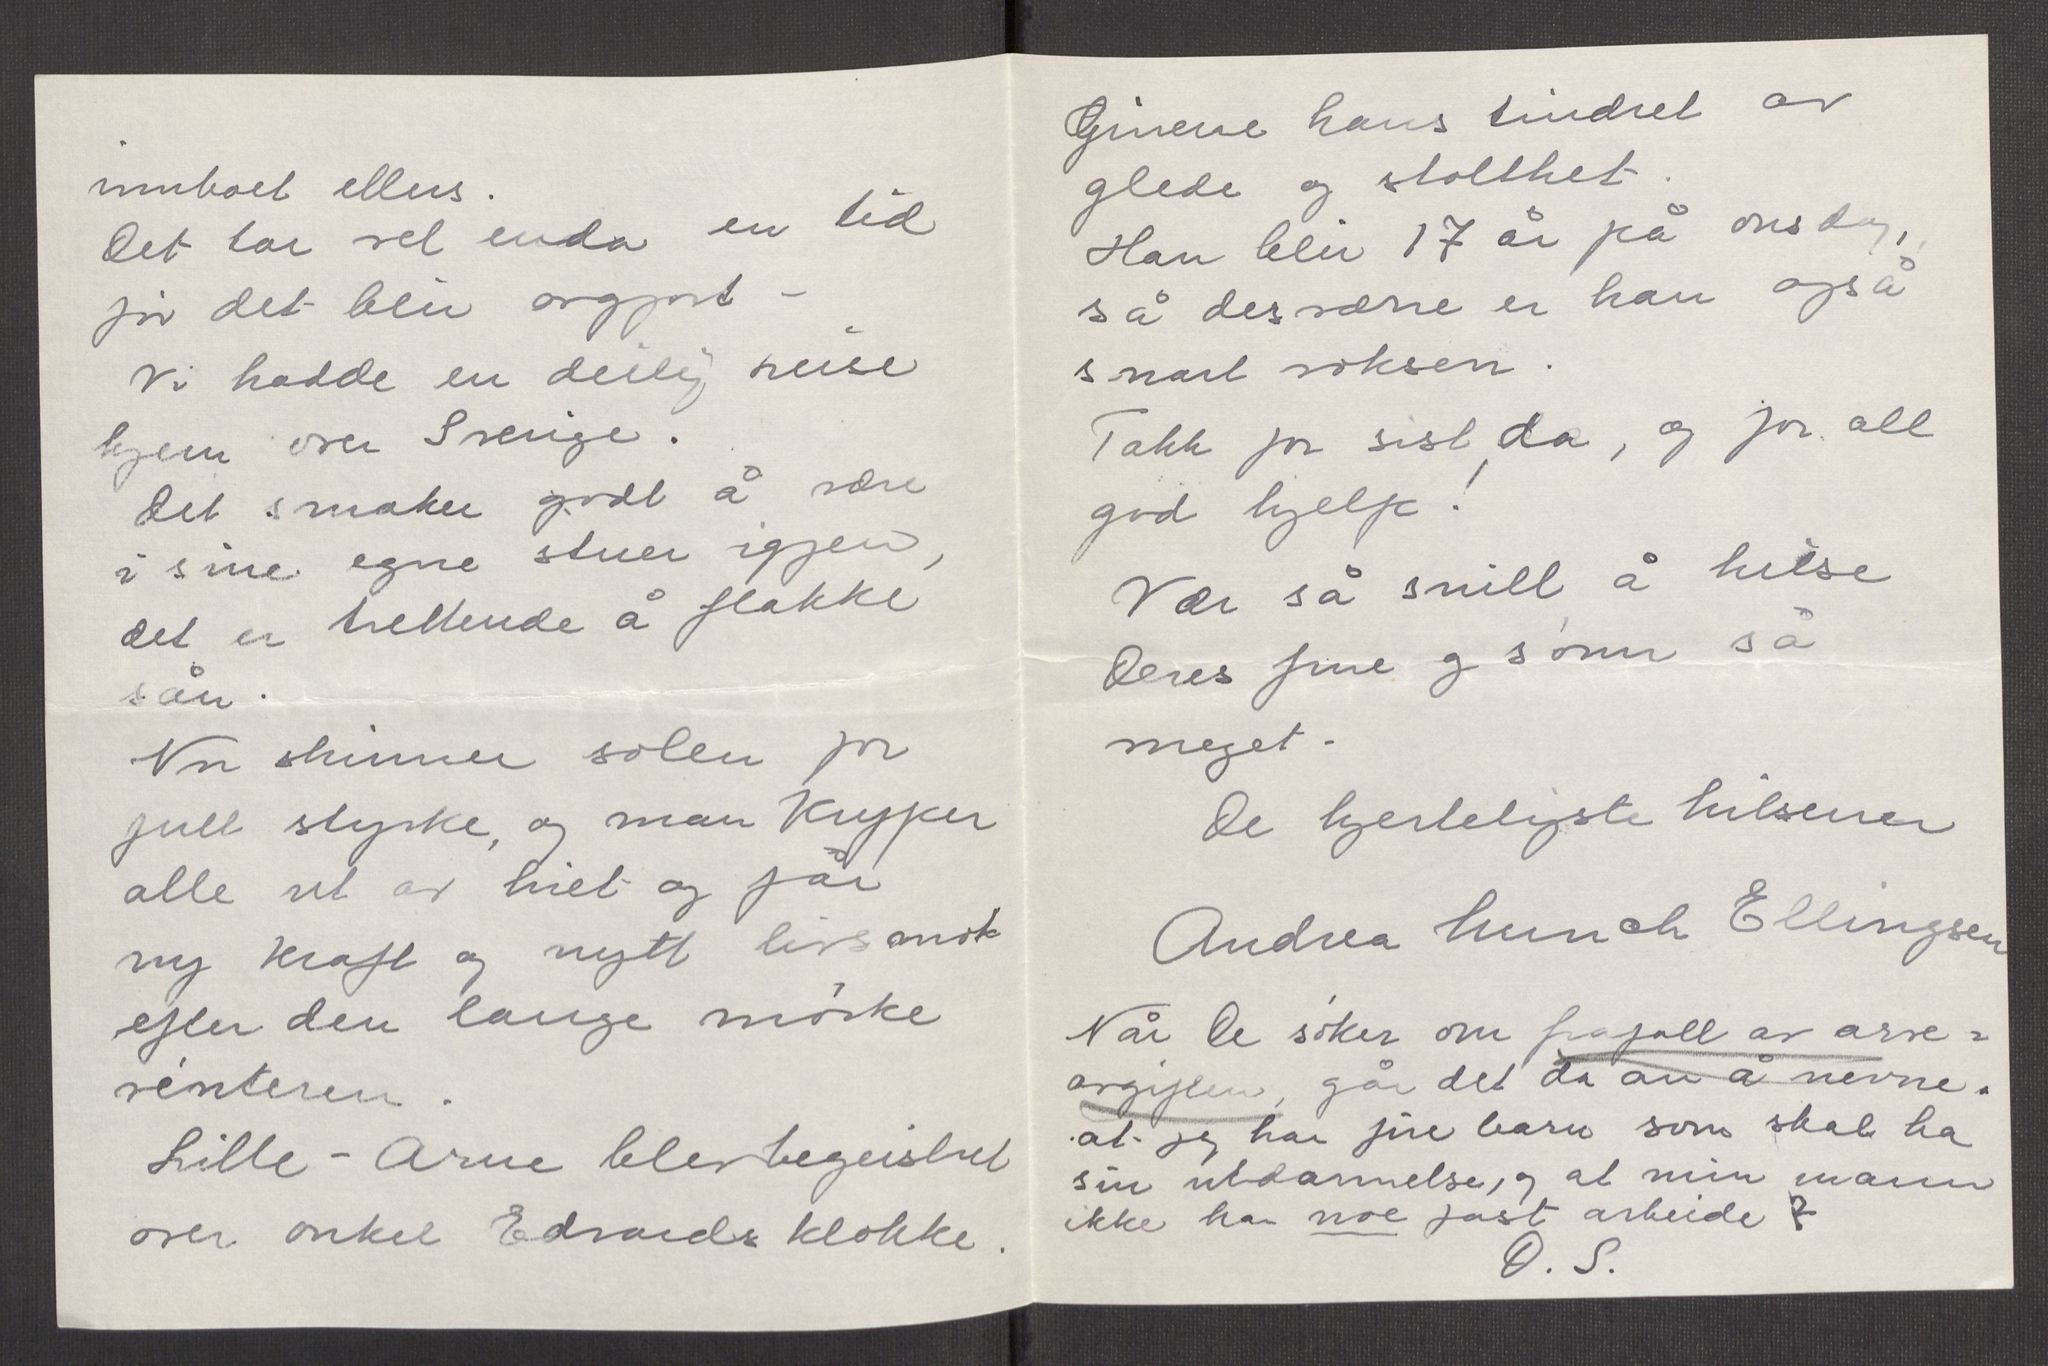 innboet ellers.
Det tar vel enda en tid
før det blir avgjort -
Vi hadde en deilig reise
hjem over Sverige.
Det smaker godt å være
i sine egne stuer igjen,
det er trettende å flakke
sån.
Nu skinner solen for
full styrke, og man kryper
alle ut av hiet og får
ny kraft og nytt livsmot
efter den lange mörke
vinteren.
Lille-Arne blev begeistret
over onkel Edvards klokke.
Öinene hans tindret av
glede og stolthet.
Han blir 17 år på onsdag,
så desværre er han også
snart voksen.
Takk for sist, da, og for all
god hjelp!
Vær så snill å hilse
Deres frue og sönn så
meget.
De hjerteligste hilsener
Andrea Munch Ellingsen
Når De söker om frafall av arve-
avgiften, går det da an å nevne
at jeg har fire barn som skal ha
sin utdannelse, og at min mann
ikke har noe fast arbeide?
D. S.